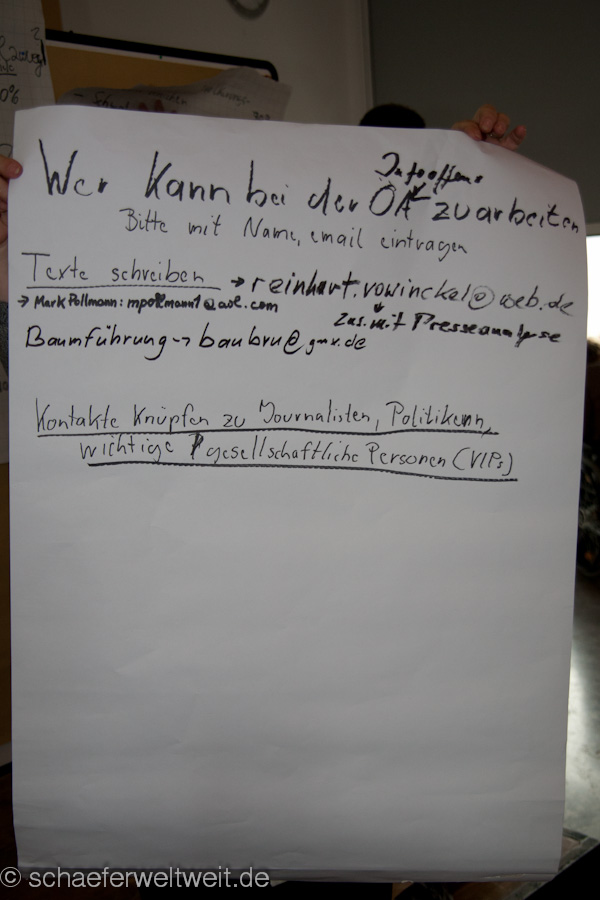 Infooffens
Wer kann bei der ÖA zuarbeiten
Bitte mit Name, email eintragen
Texte schreiben → reinhart.vowinckel@web.de
→ Mark Pollmann: mpollmann1@aol.com
Zus. mit Presseanalyse
Baumführung → baubru@gmx.de
Kontakte Knüpfen zu Journalisten, Politikern,
wichtige gesellschaftliche Personen (VIPs)
0%
© schaeferweltweit.de